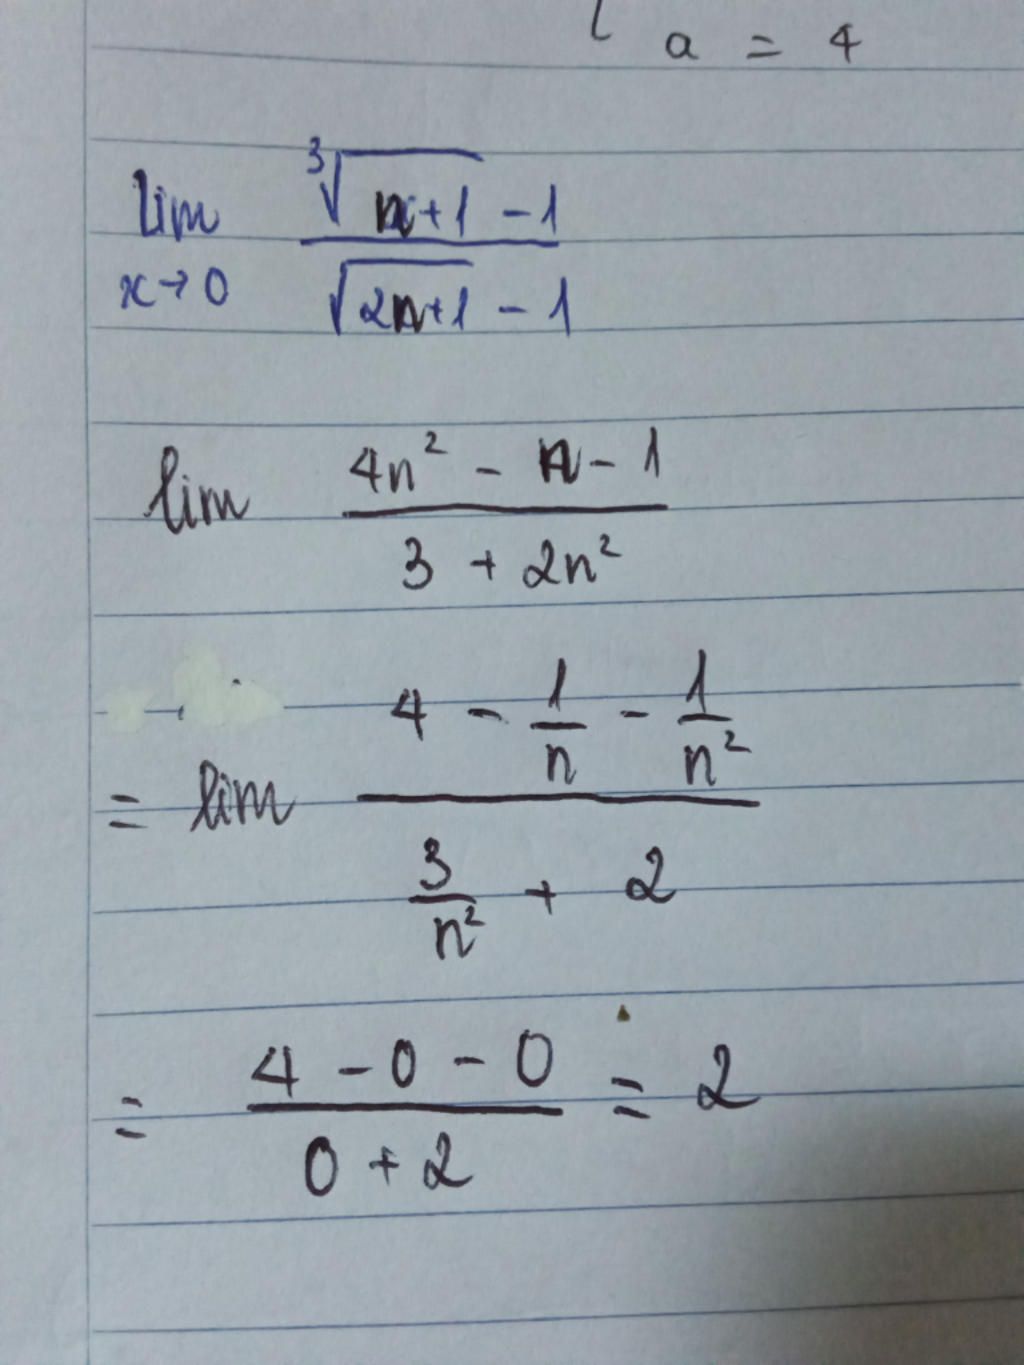 a = 4
lim x→0 (∛(n+1) - 1) / (√(2n+1) - 1)
lim (4n² - n - 1) / (3 + 2n²)
= lim (4 - 1/n - 1/n²) / (3/n² + 2)
= (4 - 0 - 0) / (0 + 2) = 2